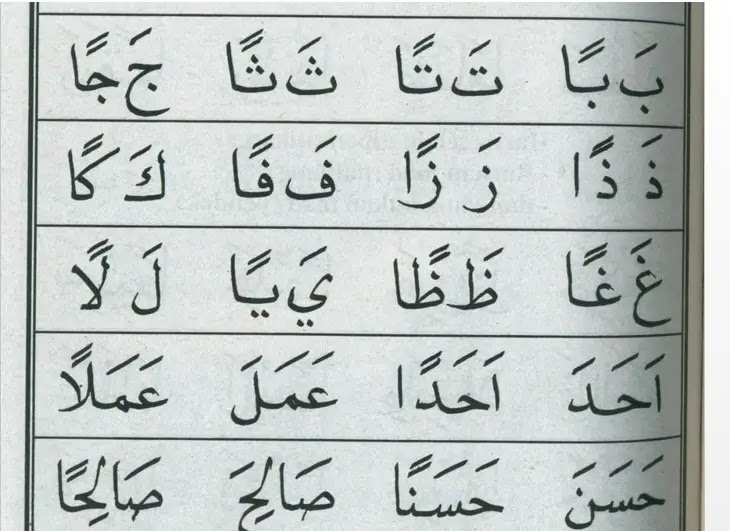 بَ بًا تَ تًا ثَ ثًا جَ جًا
ذَ ذًا زَ زًا فَ فًا كَ كًا
غَ غًا ظَ ظًا يَ يًا لَ لًا
اَحَدَ اَحَدًا عَمَلَ عَمَلًا
حَسَنَ حَسَنًا صَالِحَ صَالِحًا